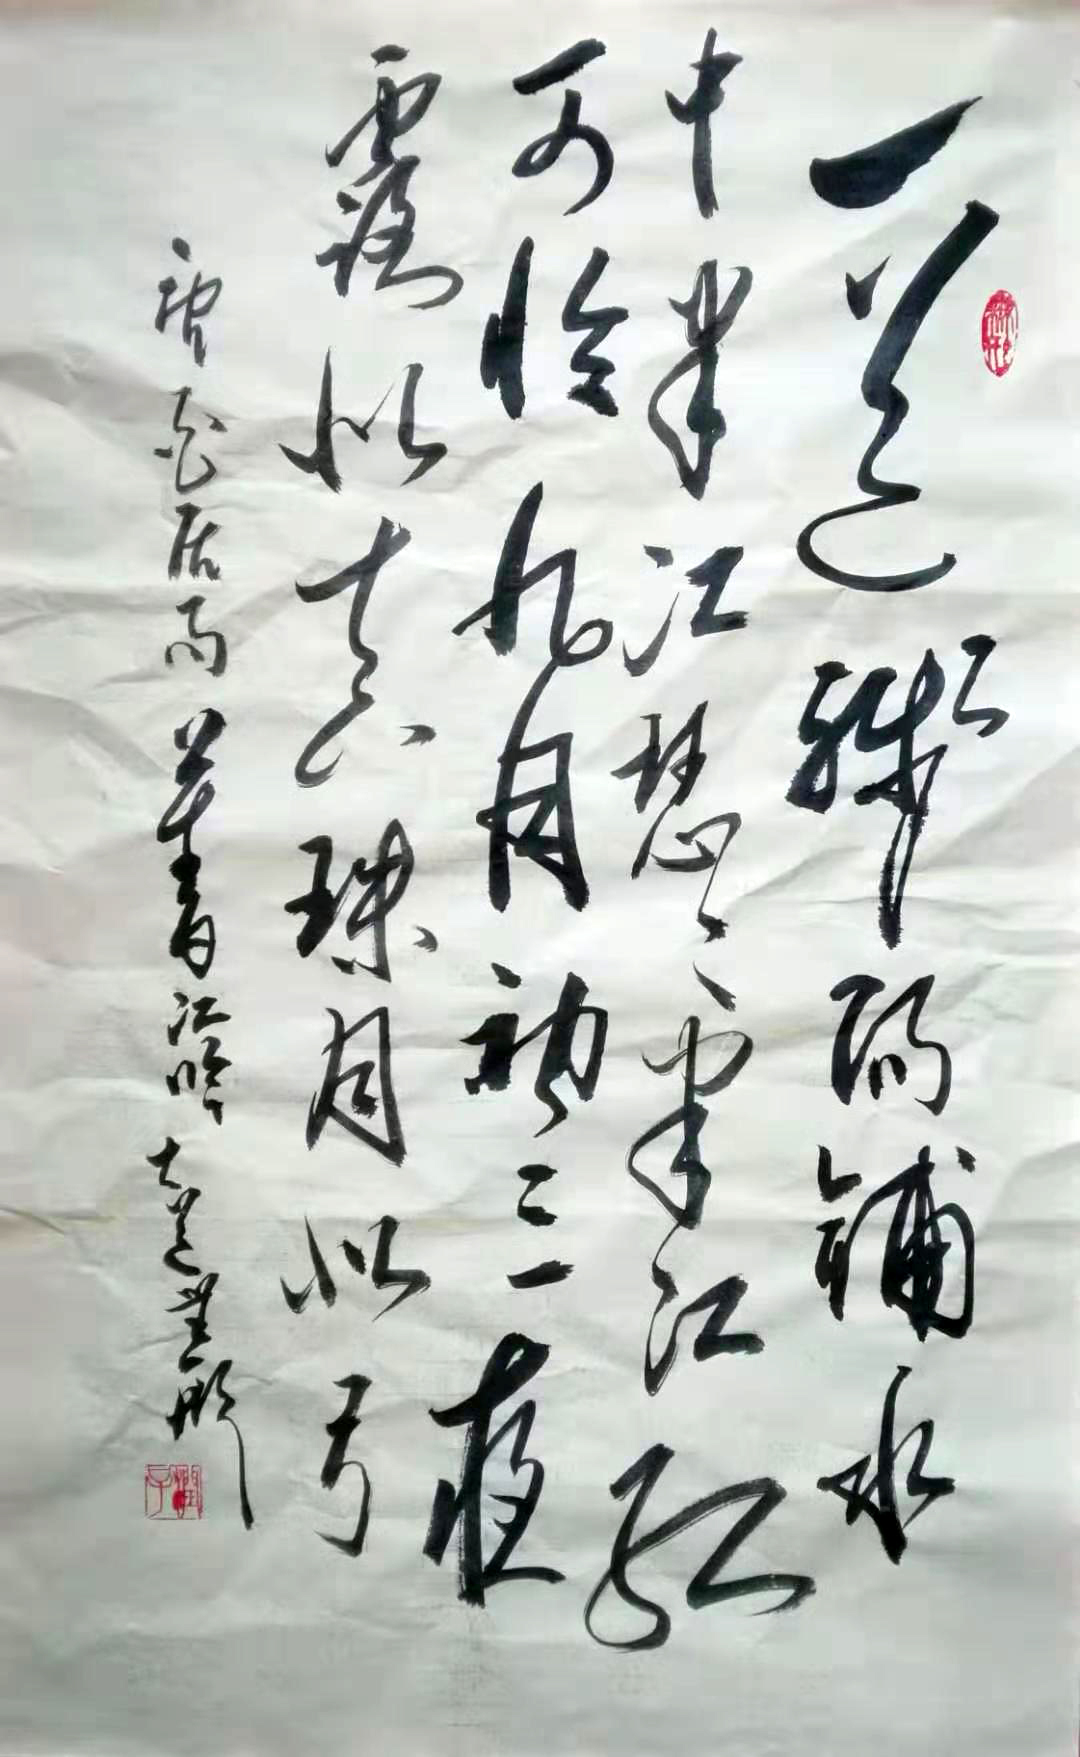 一道殘陽鋪水
中半江瑟瑟半江红
可怜九月初三夜
露似真珠月似弓
白居易暮江吟